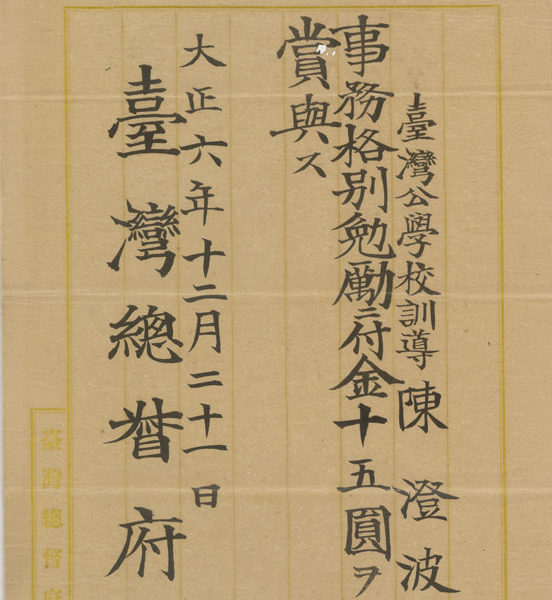 臺灣公學校訓導 陳澄波
事務格別勉勵ニ付金十五圓ヲ
賞與ス
大正六年十二月二十一日
臺灣總督府
臺灣總督府